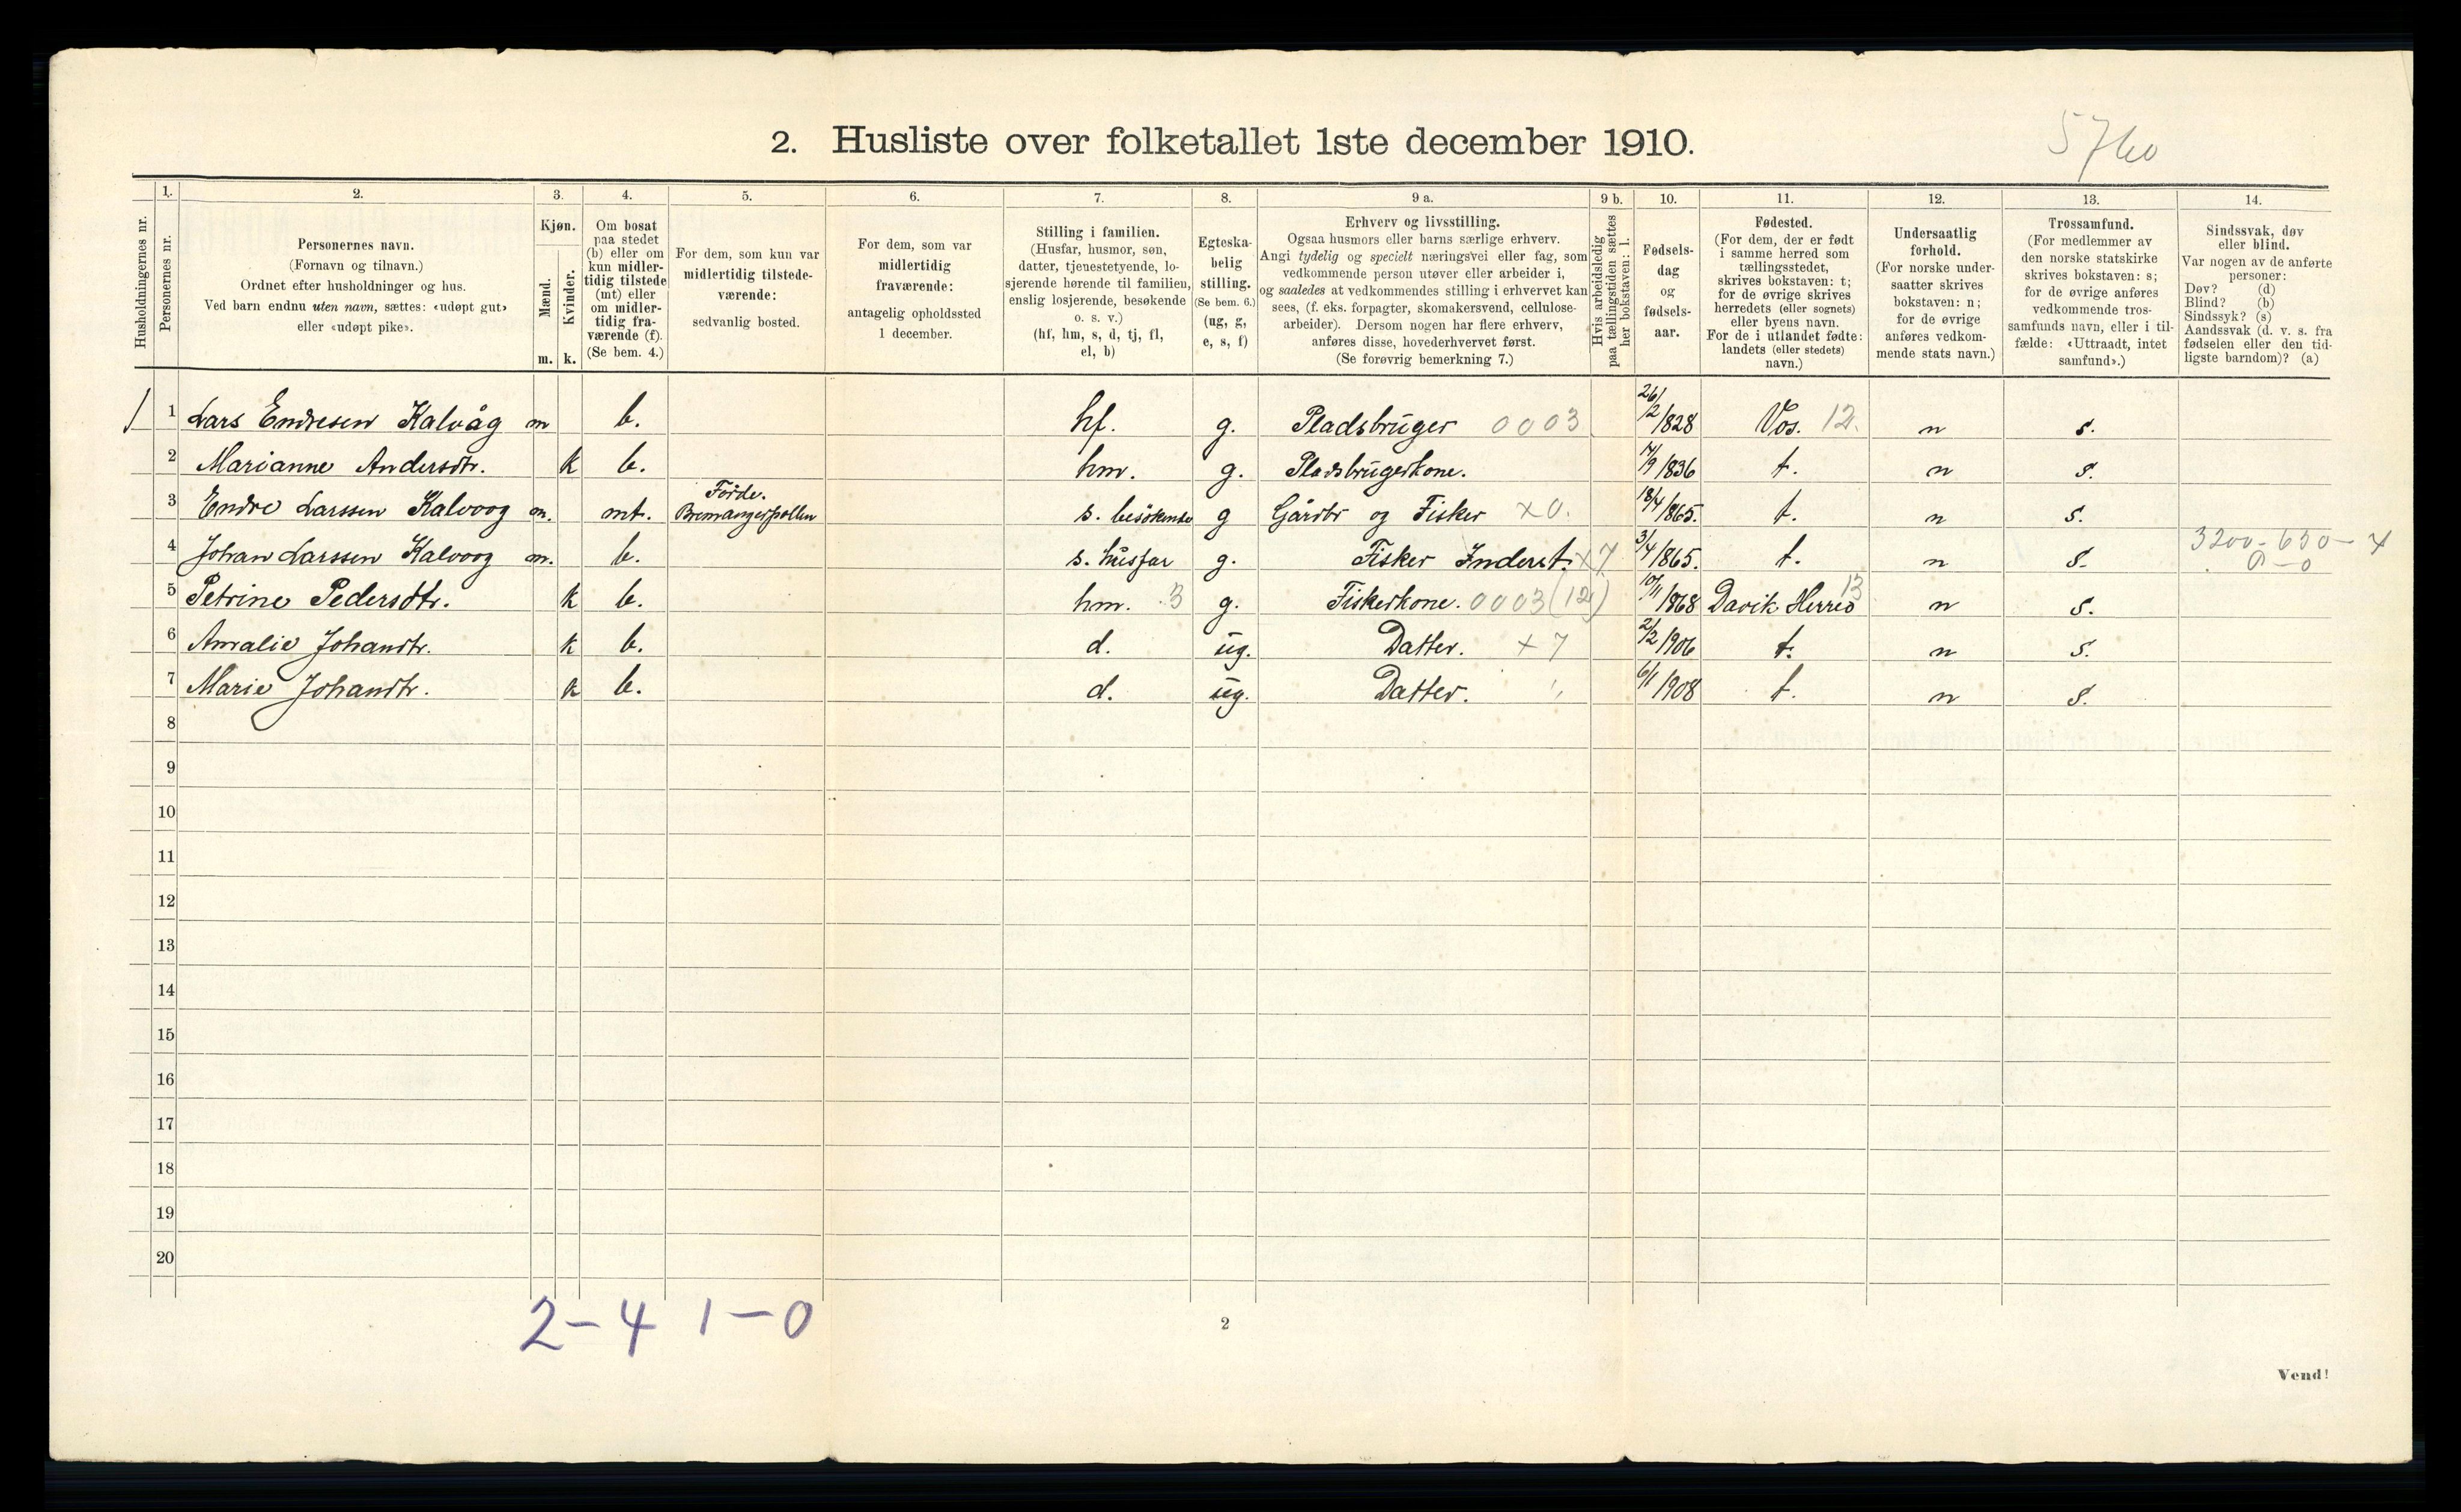 5760
2. Husliste over folketallet 1ste december 1910.
Husholdningernes nr.
1.
Personernes nr.
2.
Personernes navn.
(Fornavn og tilnavn.)
Ordnet efter husholdninger og hus.
Ved barn endnu uten navn, sættes: «udøpt gut»
eller «udøpt pike».
3.
Kjøn.
Mænd.
Kvinder.
m. k.
4.
Om bosat
paa stedet
(b) eller om
kun midler-
tidig tilstede
(mt) eller
om midler-
tidig fra-
værende (f).
(Se bem. 4.)
5.
For dem, som kun var
midlertidig tilstede-
værende:
sedvanlig bosted.
6.
For dem, som var
midlertidig
fraværende:
antagelig opholdssted
1 december.
7.
Stilling i familien.
(Husfar, husmor, søn,
datter, tjenestetyende, lo-
sjerende hørende til familien,
enslig losjerende, besøkende
o. s. v.)
(hf, hm, s, d, tj, fl,
el, b)
8.
Egteska-
belig
stilling.
(Se bem. 6.)
(ug, g,
e, s, f)
9 a.
Erhverv og livsstilling.
Ogsaa husmors eller barns særlige erhverv.
Angi tydelig og specielt næringsvei eller fag, som
vedkommende person utøver eller arbeider i,
og saaledes at vedkommendes stilling i erhvervet kan
sees, (f. eks. forpagter, skomakersvend, cellulose-
arbeider). Dersom nogen har flere erhverv,
anføres disse, hovederhvervet først.
(Se forøvrig bemerkning 7.)
9 b.
Hvis arbeidsledig
paa tællingstiden sættes
her bokstaven: l.
10.
Fødsels-
dag
og
fødsels-
aar.
11.
Fødested.
(For dem, der er født
i samme herred som
tællingsstedet,
skrives bokstaven: t;
for de øvrige skrives
herredets (eller sognets)
eller byens navn.
For de i utlandet fødte:
landets (eller stedets)
navn.)
12.
Undersaatlig
forhold.
(For norske under-
saatter skrives
bokstaven: n;
for de øvrige
anføres vedkom-
mende stats navn.)
13.
Trossamfund.
(For medlemmer av
den norske statskirke
skrives bokstaven: s;
for de øvrige anføres
vedkommende tros-
samfunds navn, eller i til-
fælde: «Uttraadt, intet
samfund».)
14.
Sindssvak, døv
eller blind.
Var nogen av de anførte
personer:
Døv? (d)
Blind? (b)
Sindssyk? (s)
Aandssvak (d. v. s. fra
fødselen eller den tid-
ligste barndom)? (a)
1 1 Lars Endresen Kalvåg m b. hf. g. Pladsbruger 0003 26/2 1828 Vos. 12. n s.
2 Marianne Andersdtr. k b. hm. g. Pladsbrugerkone. 14/9 1836 t. n s.
3 Endre Larssen Kalvoog m. mt. Förde. Bremangerpollen s. besökende g Gårdbr og Fisker x0. 18/4 1865. t. n s.
4 Johan Larssen Kalvoog m. b. s. husfar g. Fisker Inderst. x7 3/4 1865. t. n s. 3200 - 650 - 4
0 - 0
5 Petrine Pedersdtr. k b. hm. 3 g. Fiskerkone. 0003 (12) 10/11 1868 Davik Herred 13 n s.
6 Amalie Johandtr. k b. d. ug. Datter. x7 2/2 1906 t. n s.
7 Marie Johandtr. k b. d. ug. Datter. " 6/1 1908 t. n s.
8
9
10
11
12
13
14
15
16
17
18
19
20
2-4 1-0
2
Vend!